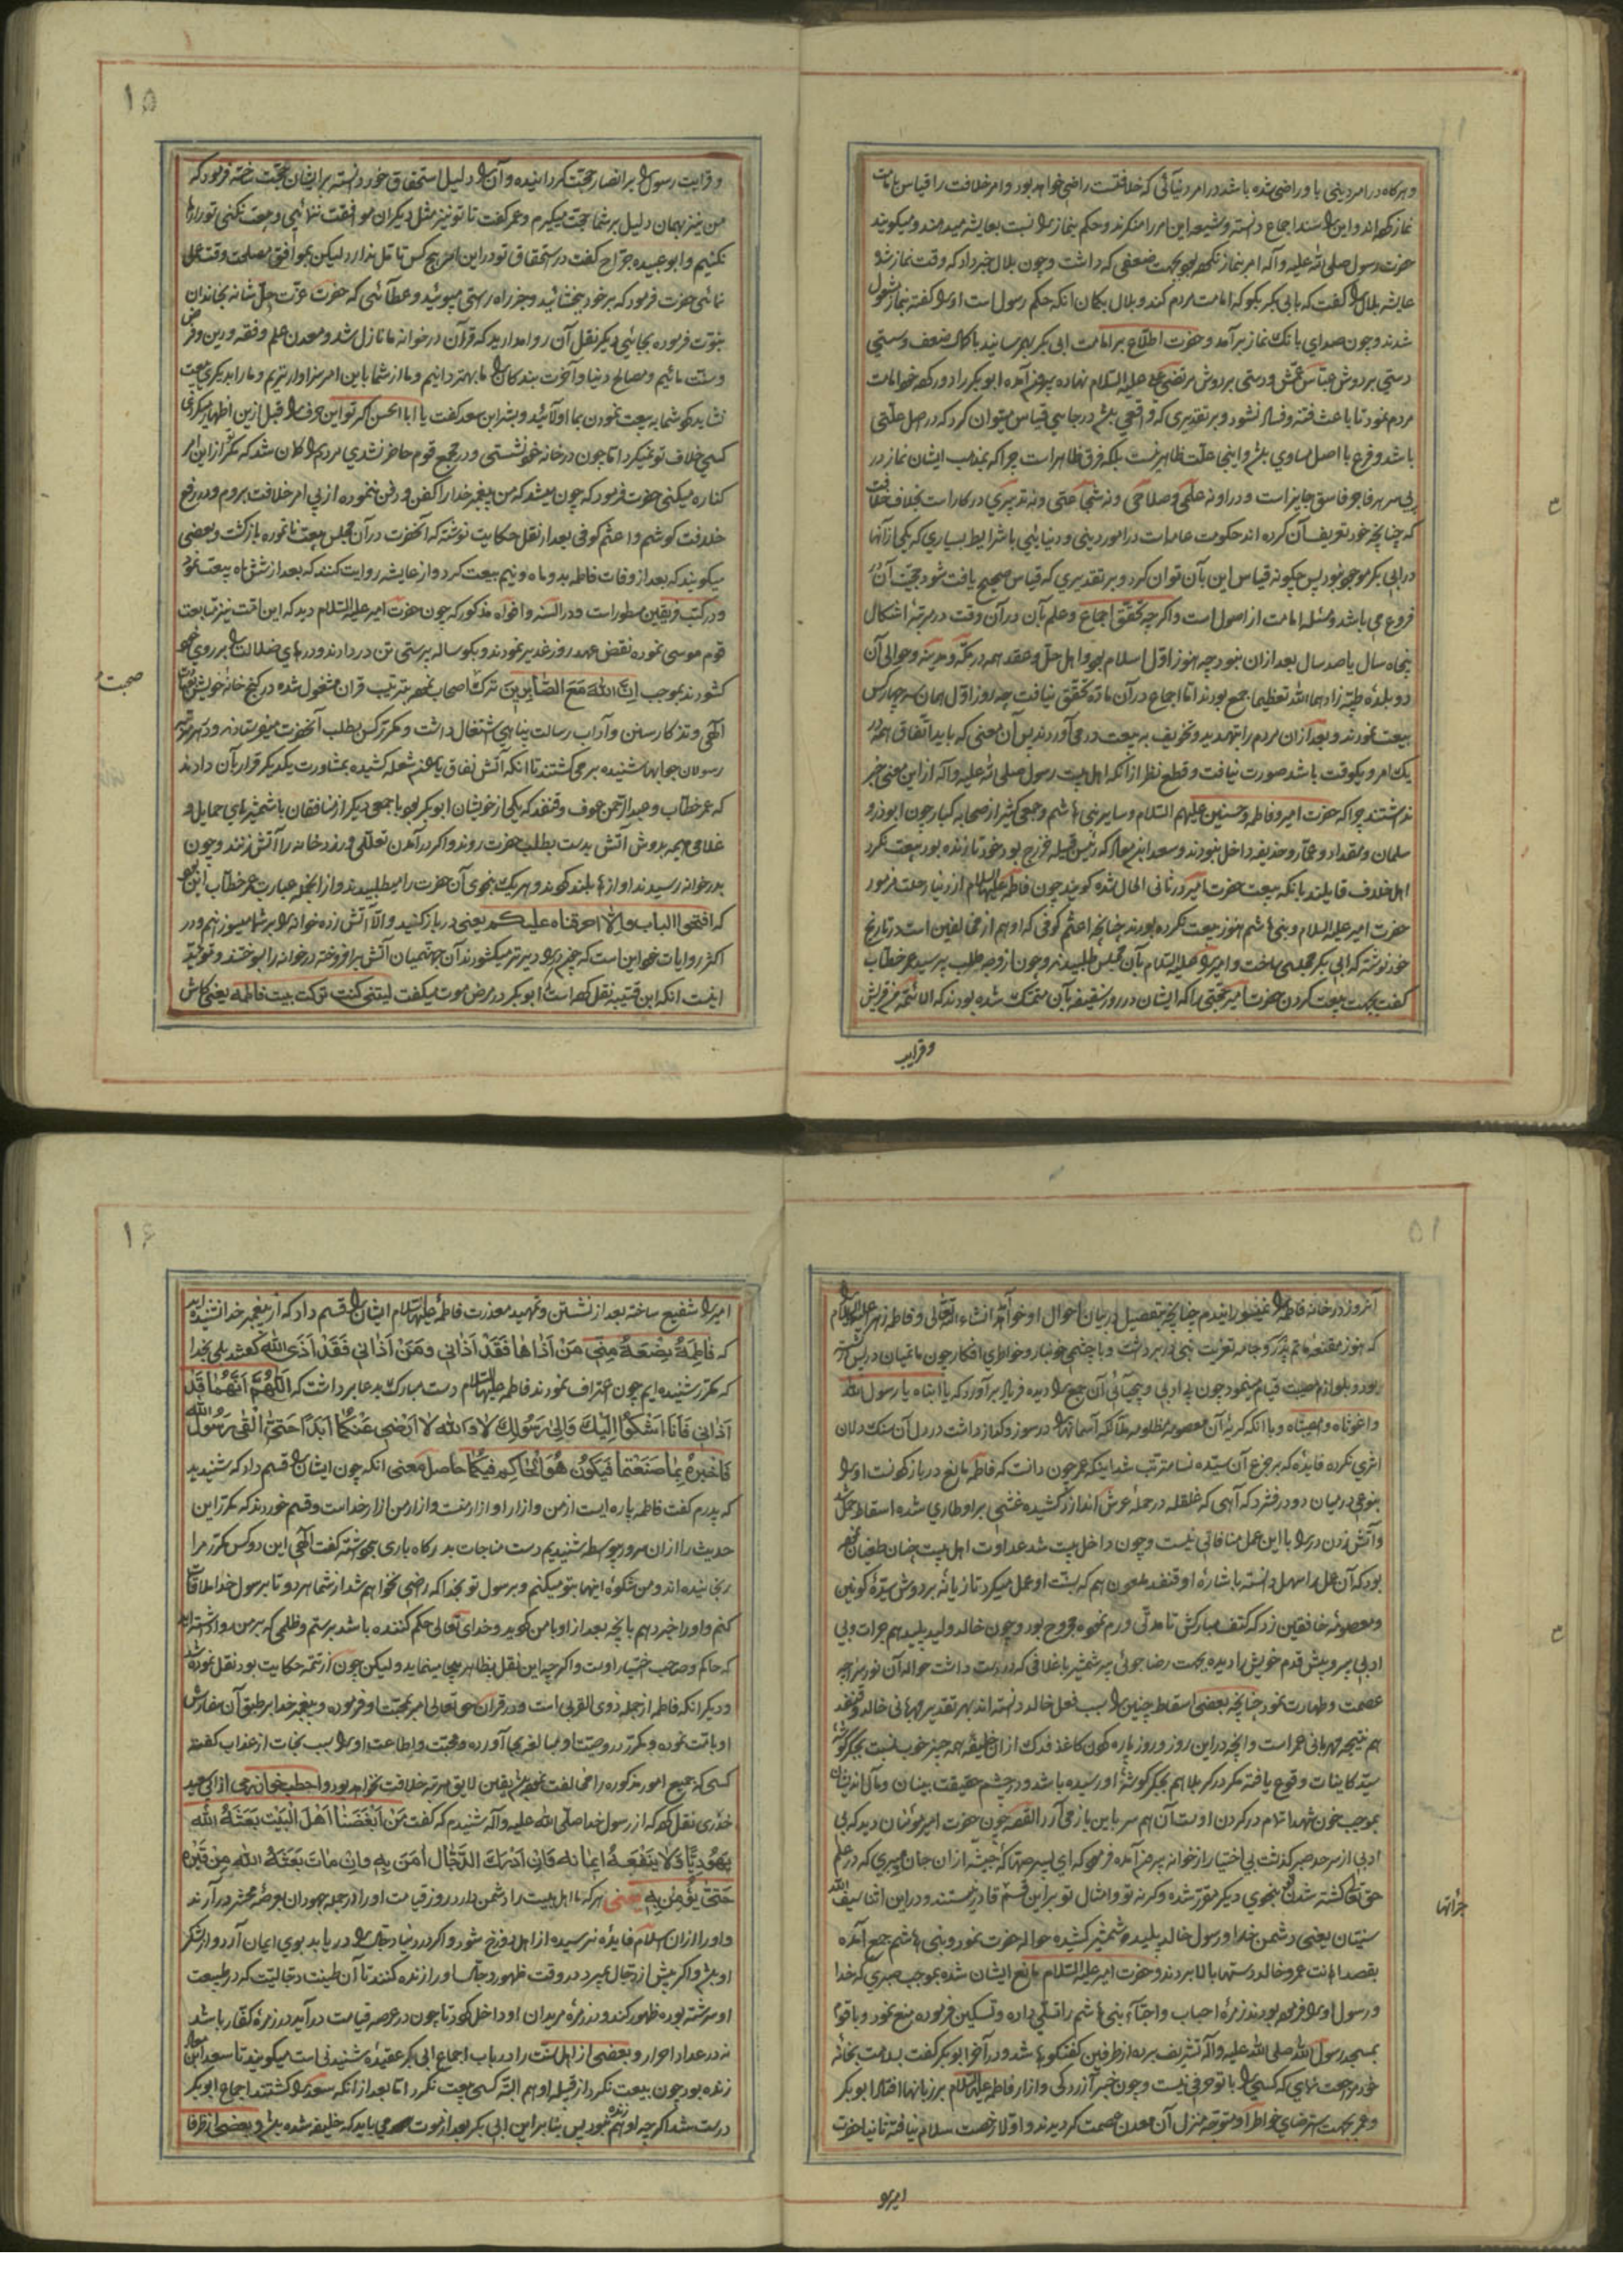 و هرکاه در امر دینی باو راضی شده باشد در امر دنیائی که خلافتست راضی خواهد بود و امر خلافت را قیاس بامامت
نماز کرده اند و این را سند اجماع دانسته و شیعه این امر را منکرند و حکم بنماز را نسبت بعایشه میدهند و میکویند
حضرت رسول صلی الله علیه و آله امر بنماز نکرده بود بجهت ضعفی که داشت و چون بلال خبر داد که وقت نماز شد
عایشه بلال را کفت که بابی بکر بکو که امامت مردم کند و بلال بکمان انکه حکم رسول است او را کفته بنماز مشغول
شدند و چون صدای بانک نماز برآمد و حضرت اطلاع بر امامت ابی بکر بهم رسانید با کمال ضعف و سستی
دستی بر دوش عباس عمش و دستی بر دوش مرتضی علی علیه السلام نهاده بیرون آمده ابوبکر را دور کرده خود امامت
مردم نمود تا باعث فتنه و فساد نشود و بر تقدیری که واقعی باشد در جایی قیاس میتوان کرد که در اصل علتی
باشد و فرع با اصل مساوی باشد و اینجا علت ظاهر نیست بلکه فرق ظاهر است چرا که بمذهب ایشان نماز در
پی سر هر فاجر و فاسق جایز است و در او نه علمی و صلاحی و نه شجاعتی و نه تدبیری در کار است بخلاف خلافت
که چنانچه خود تعریف آن کرده اند حکومت عامه است در امور دینی و دنیایی با شرایط بسیاری که یکی از آنها
در ابی بکر موجود نبود پس چکونه قیاس این بآن توان کرد و بر تقدیری که قیاس صحیح یافت شود حجیت آن در
فروع می باشد و مسئله امامت از اصول است و اکر چه تحقق اجماع و علم بآن در آن وقت در مرتبه اشکال
پنجاه سال یا صد سال بعد از ان نبود چه هنوز اول اسلام بود و اهل حل و عقد همه در مکه و مدینه و حوالی آن
دو بلده طیبه زادهما الله تعظیما جمع بودند اما اجماع در آن ماده تحقق نیافت چه روز اول همان سه چهار کس
بیعت نمودند و بعد از ان مردم را بتهدید و تخویف به بیعت در می آوردند پس آن معنی که باید اتفاق همه در
یک امر و یکوقت باشد صورت نیافت و قطع نظر از انکه اهل بیت رسول صلی الله علیه و آله از این معنی خبر
نداشتند چرا که حضرت امیر و فاطمه و حسنین علیهم السلام و سایر بنی هاشم و جمعی کثیر از صحابه کبار چون ابوذر و
سلمان و مقداد و عمار و حذیفه داخل نبودند و سعد ابن معاد که رئیس قبیله خزرج بود خود تا زنده بود بیعت نکرد
اهل خلاف قایلند بانکه بیعت حضرت امیر در ثانی الحال شده کویند چون فاطمه علیها السلام از دنیا رحلت فرمود
حضرت امیر علیه السلام و بنی هاشم هنوز بیعت نکرده بودند چنانچه اعثم کوفی که او هم از مخالفین است در تاریخ
خود نوشته که ابی بکر مجلسی ساخت و امیر را علیه السلام بآن مجلس طلبیدند و چون از وجه طلب پرسید عمر خطاب
کفت بجهت بیعت کردن حضرت امیر حجتی را که ایشان در روز سقیفه بآن متمسک شده بودند که الائمة من قریش
و قرابت
۱۵
و قرابت رسول را بر انصار حجت کردانیده و آن را دلیل استحقاق خود دانسته بر ایشان حجت ساخته فرمود که
من نیز بهمان دلیل بر شما حجت میکیرم و عمر کفت تا تو نیز مثل دیکران موافقت ننمائیی و بیعت نکنی تو را رها
نکنیم و ابو عبیده جراح کفت در استحقاق تو در این امر هیچ کس تامل ندارد لیکن موافق مصلحت وقت عمل
نمائی حضرت فرمود که بر خود ببخشائید و بجز راه راستی مپوئید و عطائی که حضرت عزت جل شانه بخاندان
نبوت فرموده بجائیی دیکر نقل آن روا مدارید که قرآن در خوانه ما نازل شد و معدن علم و فقه و دین و فرض
و سنت مائیم و مصالح دنیا و آخرت بندکان را ما بهتر دانیم و ما از شما باین امر سزاوارتریم و ما را بدیکری بیعت
نشاید که شما به بیعت نمودن بما اولائید و بشر ابن سعد کفت یا ابا الحسن اکر تو این حرف را قبل ازین اظهار میکردی
کسی خلاف تو نمیکرد اما چون در خانه خود نشستی و در مجمع قوم حاضر نشدی مردم را کمان شد که مکر از این امر
کناره میکنی حضرت فرمود که چون میشد که من پیغمبر خدا را کفن و دفن ننموده از پی امر خلافت بروم و در رفع
خلافت کوشم و اعثم کوفی بعد از نقل حکایت نوشته که آنحضرت در آن مجلس بیعت نا نموده بازکشت و بعضی
میکویند که بعد از وفات فاطمه بدو ماه و نیم بیعت کرد و از عایشه روایت کنند که بعد از شش ماه بیعت نمود
و در کتب فریقین مسطور است و در السنه و افواه مذکور که چون حضرت امیر علیه السلام دید که این امت نیز متابعت
قوم موسی نموده نقض عهد روز غدیر نمودند و بکوساله پرستی تن در دادند و درهای ضلالت را بر روی خود
کشودند بموجب اِنَّ اللهَ مَعَ الصّابِرِینَ ترک اصحاب نموده بترتیب قران مشغول شده در کنج خانه خویش بعبادت
آلهی و تذکار سنن و آداب رسالت پناهی اشتغال داشت و مکرر کس بطلب آنحضرت میفرستادند و در هر مرتبه
رسولان جوابها شنیده بر می کشتند تا انکه آتش نفاق باهم شعله کشیده بمشاورت یکدیکر قرار بآن دادند
که عمر خطاب و عبد الرحمن عوف و قنفد که یکی از خویشان ابو بکر بود با جمعی دیکر از منافقان با شمشیرهای حمایل و
غلامی هیمه بدوش آتش بدست بطلب حضرت روند و اکر در آمدن تعللی ورزد خانه را آتش زنند و چون
بدر خوانه رسیدند اوازها بلند کردند و هر یک بنحوی آن حضرت را میطلبیدند و از انجمله عبارت عمر خطاب این بود
که افتحوا الباب والا احرقناه علیکم یعنی در باز کنید و الا آتش زده خوانه را بر شما میسوزانیم و در
اکثر روایات خود این است که چون در را دیرتر میکشودند آن جهنمیان آتش برافروخته در خوانه را بسوختند و مؤید
اینست انکه ابن قتیبه نقل کرده است که ابو بکر در مرض موت میکفت لیتنی کنت ترکت بیت فاطمه یعنی کاش
صحبت
آنروز در خانه فاطمه را نمیسوزانیدم چنانچه بتفصیل در بیان احوال او خواهد آمد انشاء الله تعالی و فاطمه زهرا علیها السلام
که هنوز مقنعه ماتم پدر و جامه تعزیت نبی در بر داشت و با چشمی خونبار و خواطری افکار چون ماتمیان در پس در
بود و بلوازم مصیبت قیام مینمود چون بی ادبی و بیحیائی آن جمع را دیده فریاد برآورد که یا ابتاه یا رسول الله
واغوثاه و امصیبتاه و با انکه کریه آن معصومه مظلومه ملائکه آسمانها را در سوز و کداز داشت در دل آن سنک دلان
اثری نکرده فایده که بر جزع آن سیده نسا مترتب شد اینکه عمر چون دانست که فاطمه مانع در باز کردنست او را
بنوعی در میان دو در فشرد که آهی که غلغله در حمله عرش اندازد کشیده غشی بر او طاری شده اسقاط حمل شد
و آتش زدن در را با این عمل منافاتی نیست و چون داخل بیت شد عداوت اهل بیت چنان طغیان نمود
بود که آن عمل را سهل دانسته باشاره او قنفد ملعون هم که بسنت او عمل میکرد تازیانه بر دوش سیده کونین
و معصومه خافقین زد که کتف مبارکش تا مدتی ورم نموده مجروح بود و چون خالد ولید پلید هم جرات و بی
ادبی پیر و پیش قدم خویش را دیده بجهت رضا جوئی پیر شمشیر با غلافی که در دست داشت حواله آن نور سراچه
عصمت و طهارت نمود چنانچه بعضی اسقاط جنین را سبب فعل خالد دانسته اند بهر تقدیر مهربانی خالد و قنفد
هم نتیجه مهربانی عمر است و انچه در این روز و روز پاره کردن کاغذ فدک از ان خلیفه همه چیز خوب نسبت بجکر کوشه
سید کاینات وقوع یافته مکر در کربلا هم بجکر کوشه او رسیده باشد و در چشم حقیقت بینان و مآل اندیشان
بموجب خون شهدا تمام در کردن اوست آن هم سر باین باز می آرد القصه چون حضرت امیر مومنان دید که بی
ادبی از سر حد صبر کذشت بی اختیار از خوانه بیرون آمده فرمود که ای پسر صهاک حبشیه از ان جان میبری که در علم
حق تعالی کشته شدن تو بنحوی دیکر مقرر شده و کرنه تو و امثال تو بر این قسم قادر نیستند و در این اثنا سیف الله
سنیان یعنی دشمن خدا و رسول خالد پلید شمشیر کشیده حواله حضرت نمود و بنی هاشم جمع آمده
بقصد اهانت عمر و خالد دستها بالا بردند و حضرت امیر علیه السلام مانع ایشان شده بموجب صبری که خدا
و رسول او را فرموده بودند زمره احباب و احبآء بنی هاشم را تسلی داده و تسکین فرموده منع نمود و با قوم
بمسجد رسول الله صلی الله علیه و اله تشریف برده از طرفین کفتکوها شد و در آخر ابو بکر کفت بسلامت بخانه
خود مراجعت نمای که کسی را با تو حرفی نیست و چون خبر آزردکی و ازار فاطمه علیها السلام بر زبانها افتاد ابو بکر
و عمر بجهت استرضای خواطر او متوجه منزل آن معدن عصمت کردیدند و اولا رخصت سلام نیافته ثانیا حضرت
جرأتها
امیر را
۱۶
امیر را شفیع ساخته بعد از نشستن و تمهید معذرت فاطمه علیها السلام ایشان را قسم داد که از پیغمبر خدا شنیده اید
که فاطِمَةُ بِضْعَةٌ مِنّی مَنْ اَذاها فَقَدْ اَذانی وَ مَنْ اَذانی فَقَدْ اَذَی الله کفتند بلی بخدا
که مکرر شنیده ایم چون اعتراف نمودند فاطمه علیها السلام دست مبارک بدعا برداشت که اَللّهُمَّ اَنَّهُما قَدْ
اَذانی فَاَنَا اَشْکُوا اِلَیْکَ وَ اِلی رَسُولِکَ لا وَ الله لا اَرْضی عَنْکُما اَبَدًا حَتّی اَلْقی رَسُولَ الله
فَاَخْبِرُهُ بِما صَنَعْتُما فَیَکُونُ هُوَ الْحاکِمُ فیکُما حاصل معنی انکه چون ایشان را قسم داد که شنیدید
که پدرم کفت فاطمه پاره ایست از من و ازار او ازار منست و ازار من ازار خداست و قسم خوردند که مکرر این
حدیث را از ان سرور بیواسطه شنیدیم دست مناجات بدرکاه باری برداشته کفت آلهی این دو کس مکرر مرا
رنجانیده اند و من شکوه اینها بتو میکنم و برسول تو بخدا که راضی نخواهم شد از شما هر دو تا برسول خدا ملاقات
کنم و او را خبر دهم بانچه بعد از او با من کردید و خدای تعالی حکم کننده باشد بر ستم و ظلمی که بر من روا داشته اید
که حاکم و صاحب اختیار اوست و اکر چه این نقل بظاهر بیجا مینماید و لیکن چون از تتمه حکایت بود نقل نموده شد
و دیکر انکه فاطمه از جمله ذوی القربی است و در قران حق تعالی امر بمحبت او فرموده و پیغمبر خدا بر طبق آن سفارش
او بامت نموده و مکرر در وصیت او مبالغه بجا آورده و محبت و اطاعت او را سبب نجات از عذاب کفته
کسی که بجمیع امور مذکوره را مخالفت نموده باشد یقین لایق مرتبه خلافت نخواهد بود و اخطب خوارزمی از ابی سعید
خدری نقل کرده که از رسول خدا صلی الله علیه و آله شنیدم که کفت مَنْ اَبْغَضَنا اَهْلَ الْبَیْتِ بَعَثَهُ الله
یَهُودِیًّا وَ لا یَنْفَعُهُ ایمانه فَاِنْ اَدْرَکَ الدَّجّال اَمَنَ بِهِ وَ اِنْ ماتَ بَعَثَهُ الله مِنْ قَبْرِه
حَتّی یُؤْمِنَ بِهِ یعنی هر که ما اهل بیت را دشمن دارد در روز قیامت او را از جمله جهودان بعرصه محشر در آرند
و او را از ان اسلام فایده نرسیده از اهل دوزخ شود و اکر در دنیا دجال را دریابد بوی ایمان آرد و از لشکر
او باشد و اکر پیش از دجال بمیرد در وقت ظهور دجال او را زنده کنند تا آن طینت دجالیت که در طبیعت
او سرشته بوده ظهور کند و در زمره مریدان او داخل کردد تا چون در عرصه قیامت در آید در زمره کفار باشد
نه در عداد احرار و بعضی از اهل سنت را در باب اجماع ابی بکر عقیده شنیدنی است میکویند تا سعد ابن معاد
زنده بود چون بیعت نکرد از قبیله او هم البته کسی بیعت نکرد اما بعد از انکه سعد را کشتند اجماع ابو بکر
درست شد اکر چه او هم زنده نبود پس بنابر این ابی بکر بعد از موت می باید که خلیفه شده باشد و بعضی از ظرفا